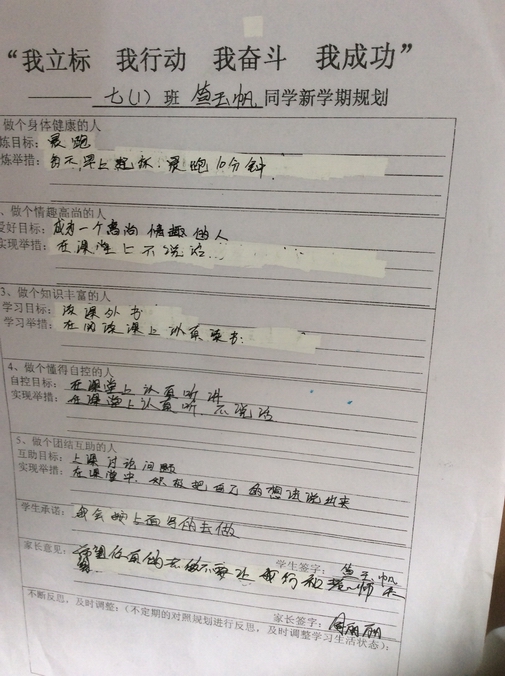 “我立标 我行动 我奋斗 我成功”
七(1)班 玉帆 同学新学期规划
做个身体健康的人
炼目标：晨跑
炼举措：每天早上起床晨跑10分钟
、做个情趣高尚的人
爱好目标：成为一个高尚情趣的人
实现举措：在课堂上不说话
3、做个知识丰富的人
学习目标：读课外书
学习举措：在阅读课上认真读书
4、做个懂得自控的人
自控目标：在课堂上认真听讲
实现举措：在课堂上认真听，不说话
5、做个团结互助的人
互助目标：上课讨论问题
实现举措：在课堂中，积极把自己的想法说出来
学生承诺：我会按上面写的去做
学生签字：玉帆
家长意见：希望你真的去做不要让我们和老师失
家长签字：周丽丽
不断反思，及时调整：（不定期的对照规划进行反思，及时调整学习生活状态）：